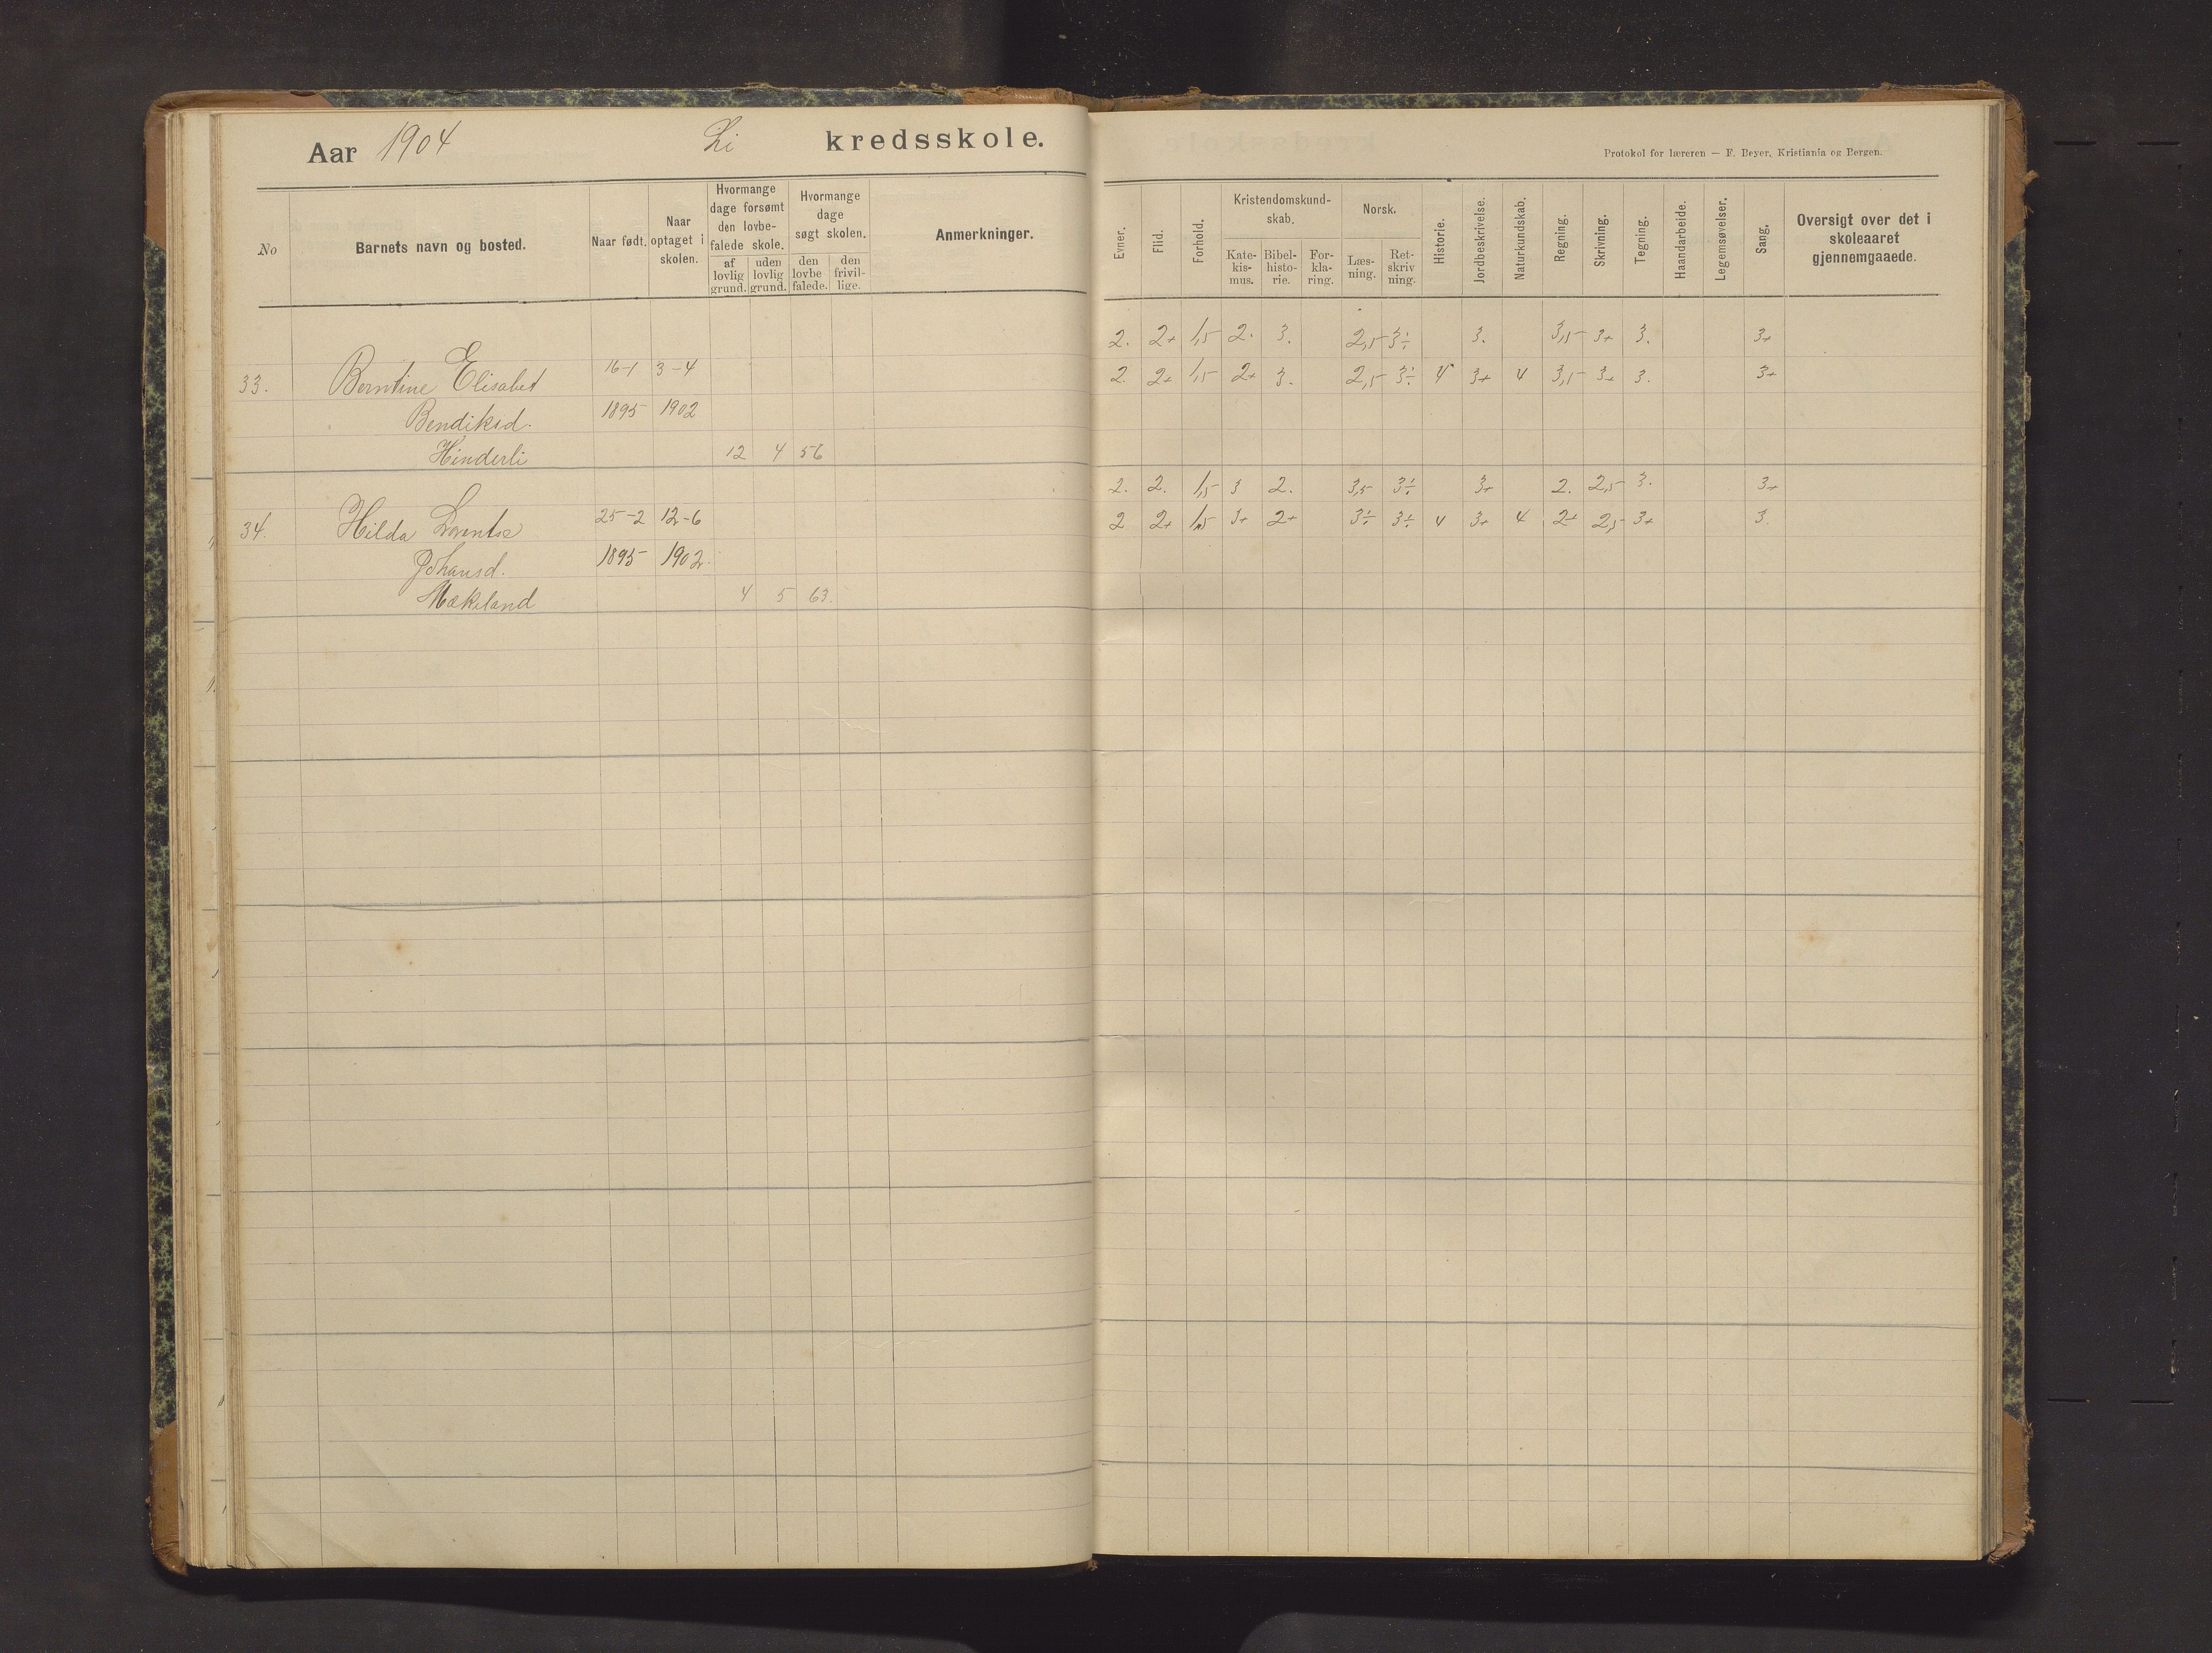 Aar 1904 Li kredsskole.
Protokol for læreren — F. Beyer, Kristiania og Bergen.
No
Barnets navn og bosted.
Naar født.
Naar optaget i skolen.
Hvormange dage forsømt den lovbefalede skole.
af lovlig grund.
uden lovlig grund.
Hvormange dage søgt skolen.
den lovbefalede.
den frivillige.
Anmerkninger.
Evner.
Flid.
Forhold.
Kristendomskundskab.
Katekismus.
Bibelhistorie.
Forklaring.
Norsk.
Læsning.
Retskrivning.
Historie.
Jordbeskrivelse.
Naturkundskab.
Regning.
Skrivning.
Tegning.
Haandarbeide.
Legemsøvelser.
Sang.
Oversigt over det i skoleaaret gjennemgaaede.
2. 2+ 1,5 2. 3. 2,5 3÷ 3. 3,5 3+ 3. 3+
33. Berntine Elisabet 16-1 3-4 2. 2+ 1,5 2+ 3. 2,5 3÷ 4 3+ 4 3,5 3+ 3. 3+
Bendiksd. 1895 1902
Hinderli 12 4 56
2. 2. 1,5 3 2. 3,5 3÷ 3+ 2. 2,5 3. 3+
34. Hilda 25-2 12-6 2 2+ 1,5 3+ 2+ 3÷ 3÷ 4 3+ 4 2+ 2,5 3+ 3.
Johansd. 1895 1902.
Mækeland 4 5 63.